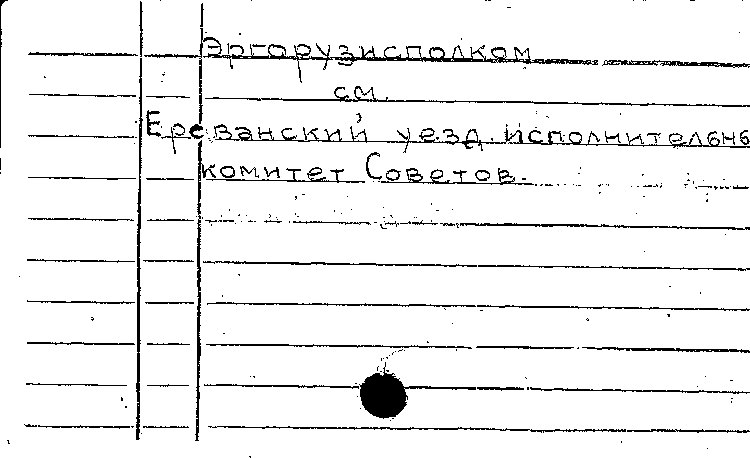 Эргорузисполком
см.
Ереванский уезд. исполнительнь
комитет Советов.